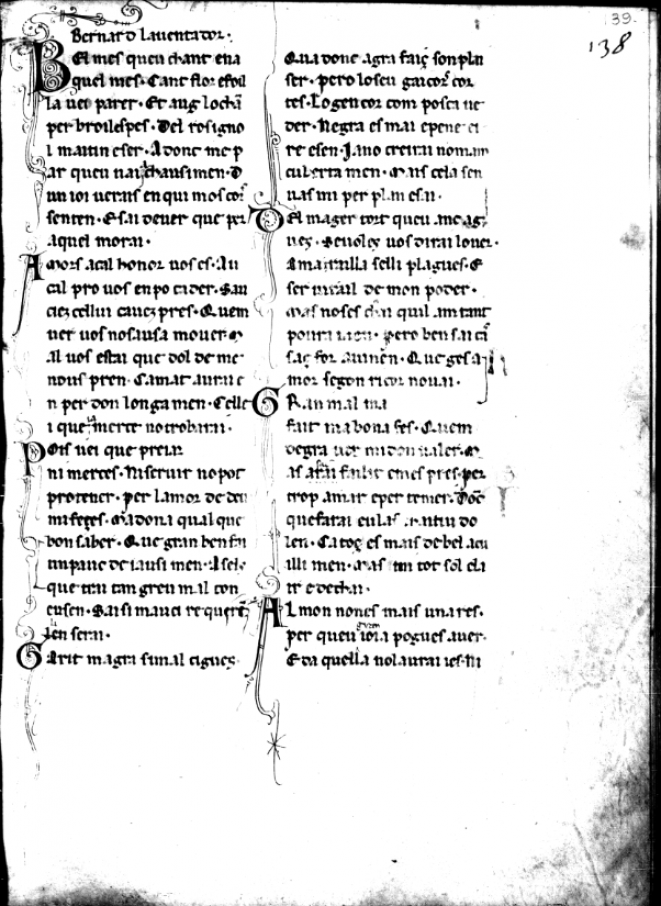 39.
138
Bernard laventador.
Bel mes queu chant en a
quel mes. Cant flor e foil
la vei parer. Et aug lo chã
per broil espes. Del rosigno
l maitin e ser. Adonc me p
ar queu nai chausimen. D
un ioi verais en qui mos cor
senten. E sai de ver que per
aquel morai.
Amors a cal honor vos es. Au
cal pro vos en po cader. Sau
ciez cellui cauez pres. Quem
ver vos nos ausa mover. M
al vos estai que dol de me
nous pren. Camat aurai e
n per don longamen. Celle
i que merce no trobarai.
Pois vei que preiar
ni merces. Ni servir no pot
pro tener. Per lamor de deu
mi feges. Madona qual que
bon saber. Que gran ben fai
un pauc de iausimen. A cel.
que trai tan greu mal con
eu sen. E saisi mauci requerer
len serai.
Garit magra sim al cigues.
Qua donc agra faiç son plai
ser. Pero lo seu gai cors cor
tes. Logen cor com posca ve
der. Negra es mai e pene ei
re e sen. Ja no creirai nomam
cuberta men. Mas cela sen
vas mi per plan esai.
Del mager tort queu .
veç. Se voleç vos dirai lo ver.
Amaraila selli plagues. E
ser de mon poder.
Mas nos es quil am tant
Pero ben sai
saç for Que ges a
mor segon ricor no vai.
Gran mal ma
fait ma bona fes. Quem
degra ver midon valer. M
as pres per
trop amar e per temer. Doc
que farai eu las
len. Ca toç es mais de bel acu
illi men. Mas tot sol
Al mon non es mais una res.
per queu ioia pogues aver.
E da quella nol aurai ies. Ni